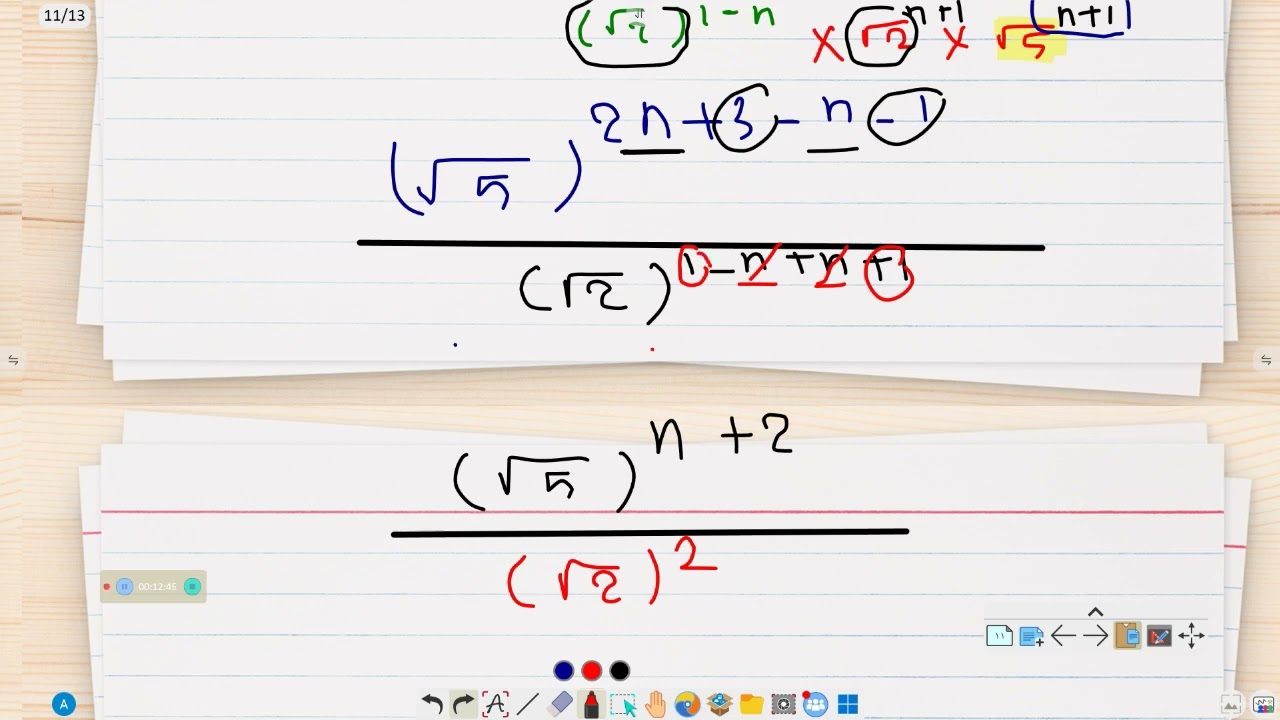 11/13
(√2)^{1-n} × √2^{n+1} × √5^{(n+1)}
(√5)^{2n+3-n-1}
(√2)^{1-n+n+1}
(√5)^{n+2}
(√2)^2
00:12:46
A